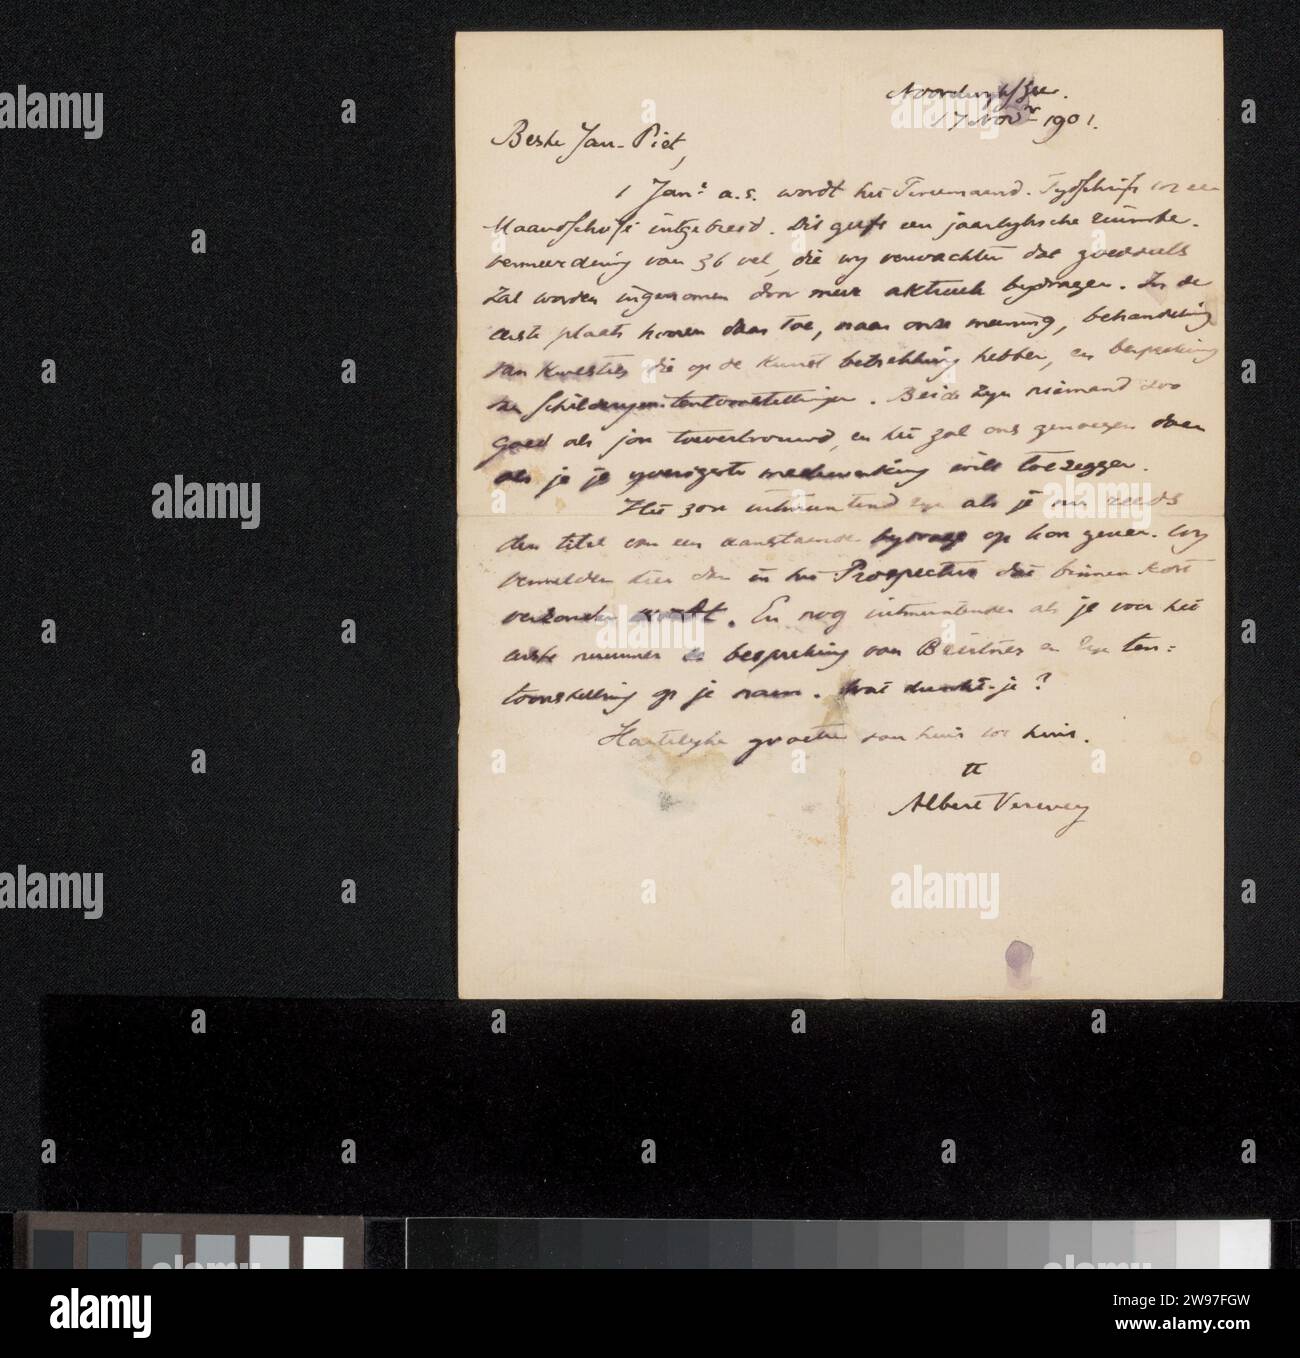 Noordwijk/Zee.
17 Novr 1901.
Beste Jan-Piet,
1 Jan. a.s. wordt het Tweemaand. Tydschrift tot een
Maandschrift uitgebreid. Dit geeft een jaarlyksche ruimte-
vermeerdering van 36 vel, die wy verwachten dat goeddeels
zal worden ingenomen door meer aktueele bydragen. In de
eerste plaats hooren daar toe, naar onze meening, behandeling
van kwesties die op de kunst betrekking hebben, en bespreking
van schilderyententoonstellingen. Beide zyn niemand zoo
goed als jou toevertrouwd, en het zal ons genoegen doen
als je je yverigste medewerking wilt toezeggen.
Het zou uitmuntend zyn als je me reeds
den titel van een aanstaande bydrage op kon geven. Wy
vermelden hier dan in het Prospectus dat binnenkort
verzonden wordt. En nog uitmuntender als je voor het
eerste nummer de bespreking van en zyn ten-
toonstelling op je nam. Wat dunkt-je?
Hartelyke groeten van huis tot huis.
tt
Albert Verwey
alamy
a
alamy
Image ID: 2W97FGW
www.alamy.com